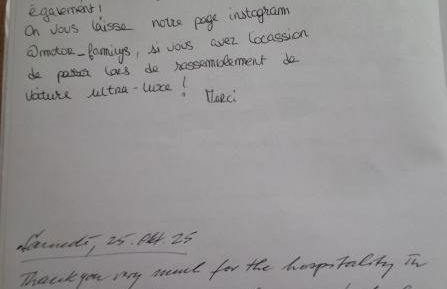 également !
On vous laisse notre page instagram
@motor_familys, si vous avez locassion
de passer lors de rassemblement de
voiture ultra-luxe ! Marci
Samedi, 25. Okt. 25
Thank you very much for the hospitality in